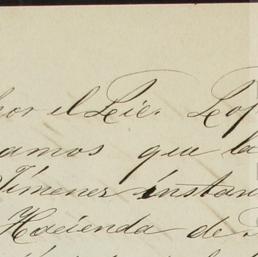 por el Lic. Lop
amos que la
Jimenez instan
Hacienda de